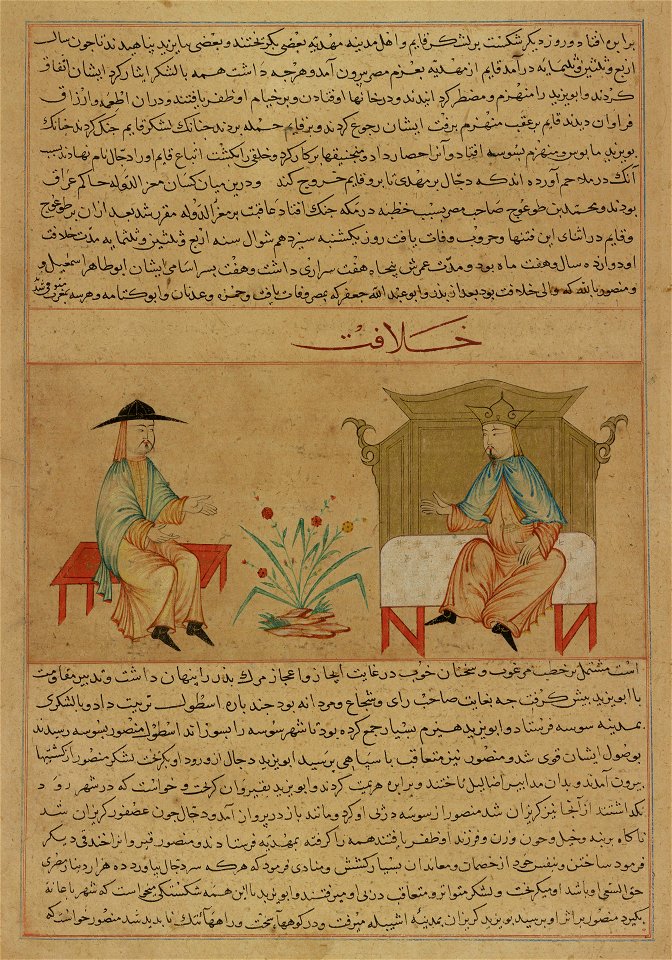 برابره افتاد و روز دیگر شکست بر لشکر قایم و اهل مدینه مهدیه بعضی بگریختند و بعضی با یزید پناهیدند تا چون سال
اربع و ثلثین و ثلثمایه در آمد قایم از مهدیه بعزم مصر بیرون آمد و هرچه داشت همه با لشکر ایثار کرد ایشان اتفاق
کردند و ابو یزید را منهزم و مضطر کردانیدند و در خانها افتادن و بر خیام او ظفر یافتند و در ان اطعمه و ارزاق
فراوان دیدند قایم بر عقب منهزم برفت ایشان رجوع کردند و بر قایم حمله بردند چنانک لشکر قایم جنک کردند چنانک
بو یزید مایوس و منهزم بسوسه افتاد و آنرا حصار داد و منجنیقها بر کار کرد و خلقی را بکشت اتباع قایم او را دجال نام نهادند بسبب
آنک در ملاحم آورده اند که دجال بر مهدی تا بر و قایم خروج کند و درین میان کسان معز الدوله حاکم عراق
بودند و محمد بن طوغج صاحب مصر بسبب خطبه در مکه جنک افتاد عاقبت بر معز الدوله مقرر شد بعد از ان بر طوغج
و قایم در اثنای این فتنها و حروب وفات یافت روز یکشنبه سیزدهم شوال سنه اربع و ثلثین و ثلثمایه مدت خلافت
او دوازده سال و هفت ماه بود و مدت عمرش پنجاه هفت سراری داشت و هفت پسر اسامی ایشان ابو طاهر اسمعیل و
و منصور بالله که والی خلافت بود بعد از پدر و ابو عبد الله جعفر که بمصر وفات یافت و حمزه و عدنان و ابو کتامه و هر سه بمغرب متوفی شد
خلافت
است مشتمل بر خصب مرغوب و سخنان خوب در غایت ایجاز و اعجاز مرک پدر را پنهان داشت و تدبیر مقاومت
با ابو یزید پیش کرفت چه بغایت صاحب رای و شجاع و مردانه بود چند باره اسطول ترتیب داد و با لشکری
بمدینه سوسه فرستاد و ابو یزید هیزم بسیار جمع کرده بود تا شهر سوسه را بسوزاند اسطول منصور بسوسه رسیدند
بوصول ایشان قوی شد و منصور نیز متعاقب با سپاهی برسید ابو یزید دجال از ورود او بکریخت لشکر منصور از کشتیها
بیرون آمدند و بدان مدابیر اضالیل تاختند و برابره هزیمت کردند و ابو یزید بقیروان کریخت و خواست که در شهر رود
نکداشتند از آنجا نیز کریزان شد منصور از سوسه در پی او کرد و مانند باز در پرواز آمد و دجال چون عصفور کریزان شد
ناکاه برینه و خیل و چون و زن و فرزند او ظفر یافتند همه را کرفته بمهدیه فرستادند و منصور قیروانرا خندقی دیکر
فرمود ساختن و بنفس خود از خصمات و معاندان بسیار بکشتش و منادی فرمود که هر که سر دجال بیاورد ده هزار دینار مغربی
حق السعی او باشد او میکریخت و لشکر متواتر و متعاقب در پی او میرفتند و ابو یزید با این همه شکستکی میخواست که شهر باغانه
بکیرد منصور بر اثر او برسید بو یزید کریزان بمدینه اشبیله میرفت و در کوهها سخت و راههای تنک ناپدید شد منصور خواست که